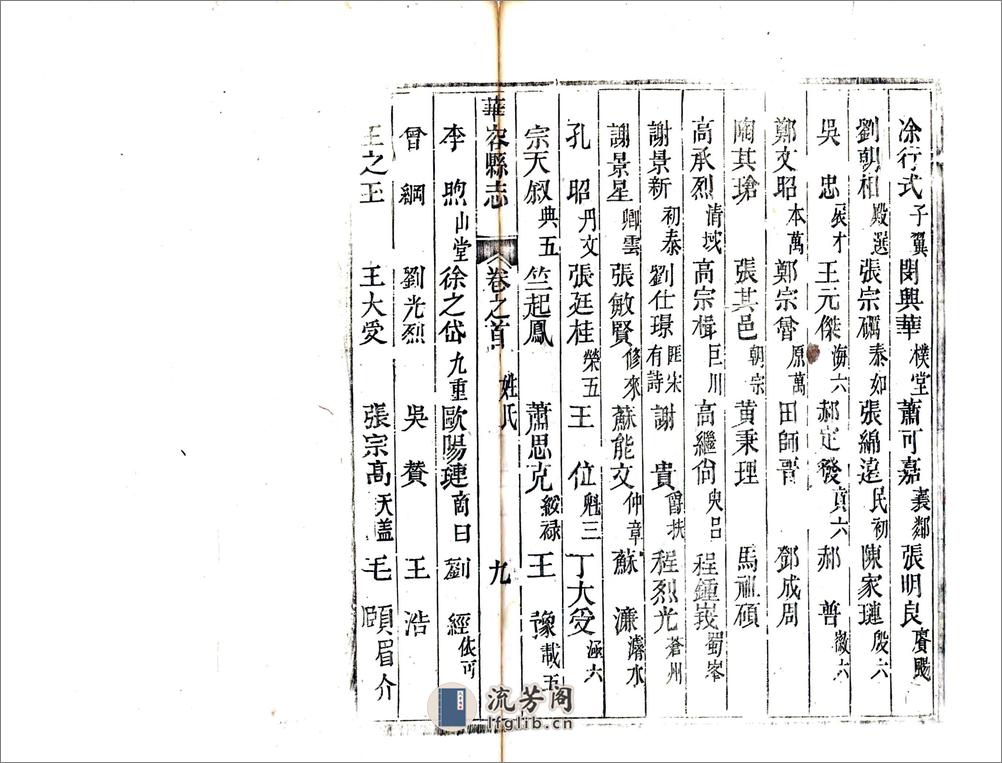 涂行式子翼 閔興華樸堂 蕭可嘉義鄰 張明良賡颺
劉朝相殿選 張宗礪泰如 張綿遠民初 陳家璉殷六
吳忠展才 王元傑海六 郝定發貞六 郝普徽六
鄭文昭本萬 鄭宗曾原萬 田師晋 鄧成周
陶其瑲 張其邑朝宗 黃秉理 馬祖碩
高承烈清域 高宗楫巨川 高繼尙臾呂 程鍾峩蜀峯
謝景新初泰 劉仕璟匪朱有詩 謝貴爵扶 程烈光蒼州
謝景星卿雲 張敏賢修來 蘇能文仲章 蘇濂濂水
孔昭丹文 張廷桂榮五 王位魁三 丁大受涵六
宗天敘典五 竺起鳳 蕭思克綏祿 王豫載五
華容縣志 卷之首 姓氏 九
李煦山堂 徐之岱九重 歐陽璉商日 劉經依可
曾綱 劉光烈 吳贊 王浩
王之王 王大受 張宗高天盖 毛頤眉介
流芳阁
lfglib.cn